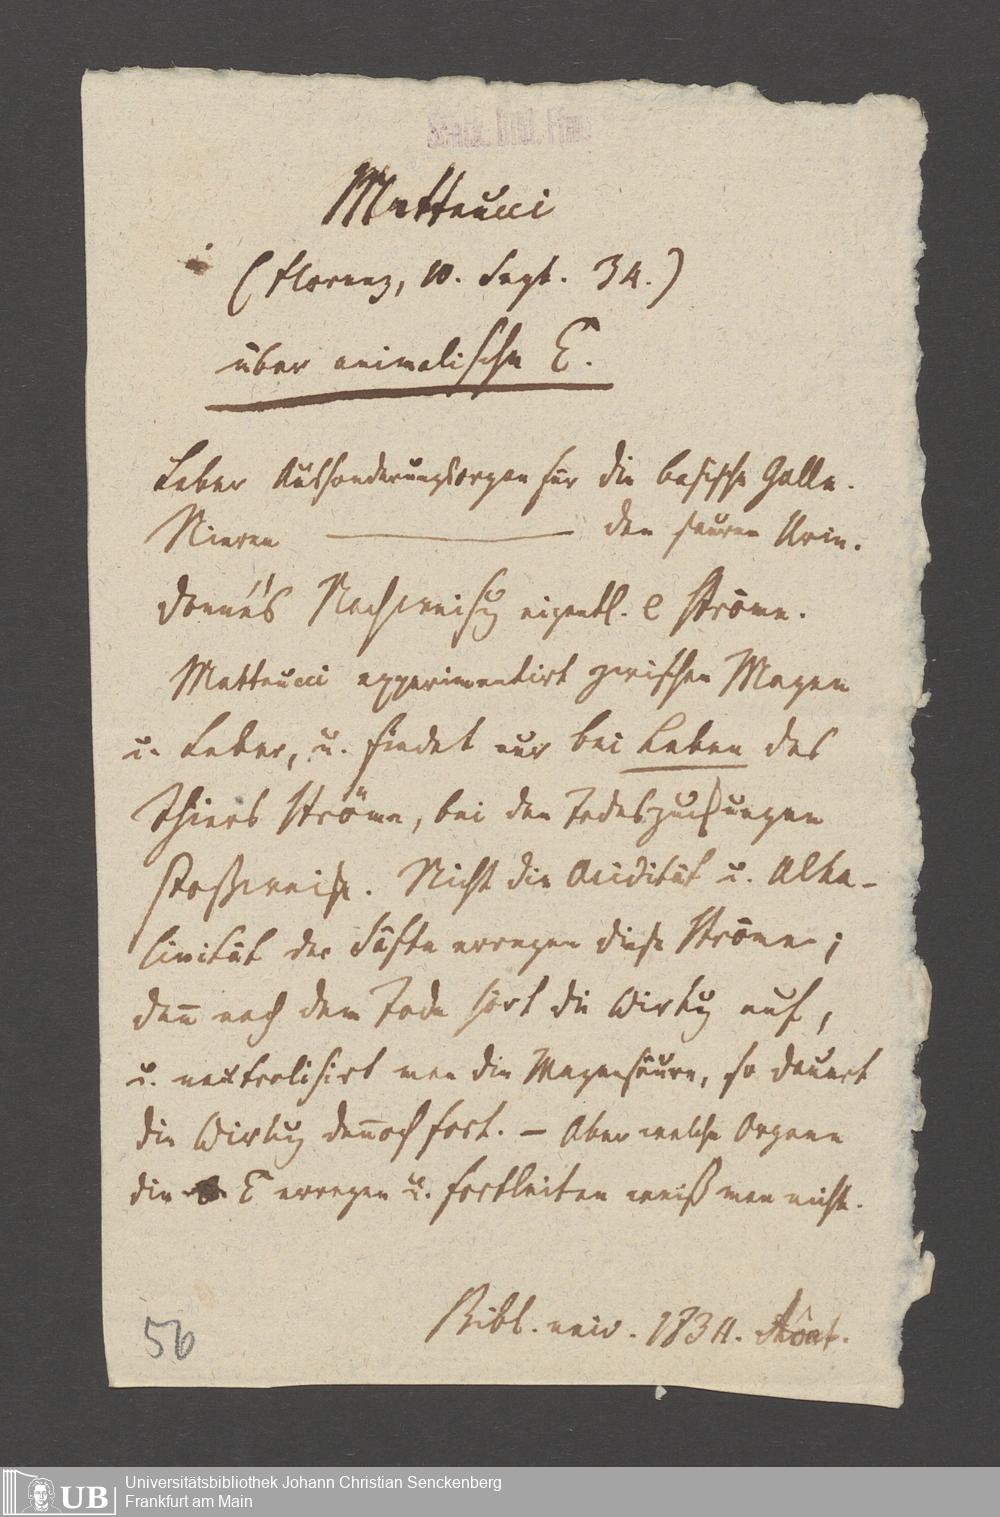 Senck. Bibl. Ffm.
Matteucci
(Florenz, 10. Sept. 34.)
über animalische E.
Leber Aussonderungsorgan für die basische Galle.
Nieren ———— den sauren Urin.
Donné's Nachweisg eigentl. e Ströme.
Matteucci experimentirt zwischen Magen
u. Leber, u. findet nur bei Leben des
Thiers Ströme, bei den Todeszuckungen
stoßweise. Nicht die Acidität u. Alka-
linität der Säfte erregen diese Ströme;
deñ nach dem Tode hört die Wirkg auf,
u. neutralisirt man die Magensäure, so dauert
die Wirkg deñoch fort. – Aber welche Organe
die E erregen u. fortleiten weiß man nicht.
Bibl. univ. 1834. Août.
50
UB
Universitätsbibliothek Johann Christian Senckenberg
Frankfurt am Main